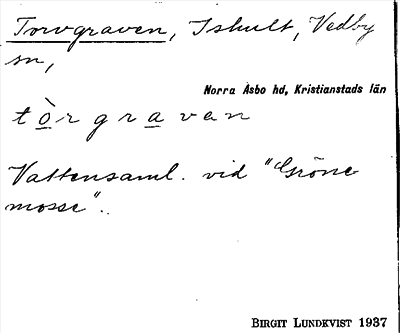 Torvgraven, Ishult, Vedby
sn,
Norra Åsbo hd, Kristianstads län
t ò r g r a v e n
Vattensaml. vid "Gröne
mosse".
BIRGIT LUNDKVIST 1937